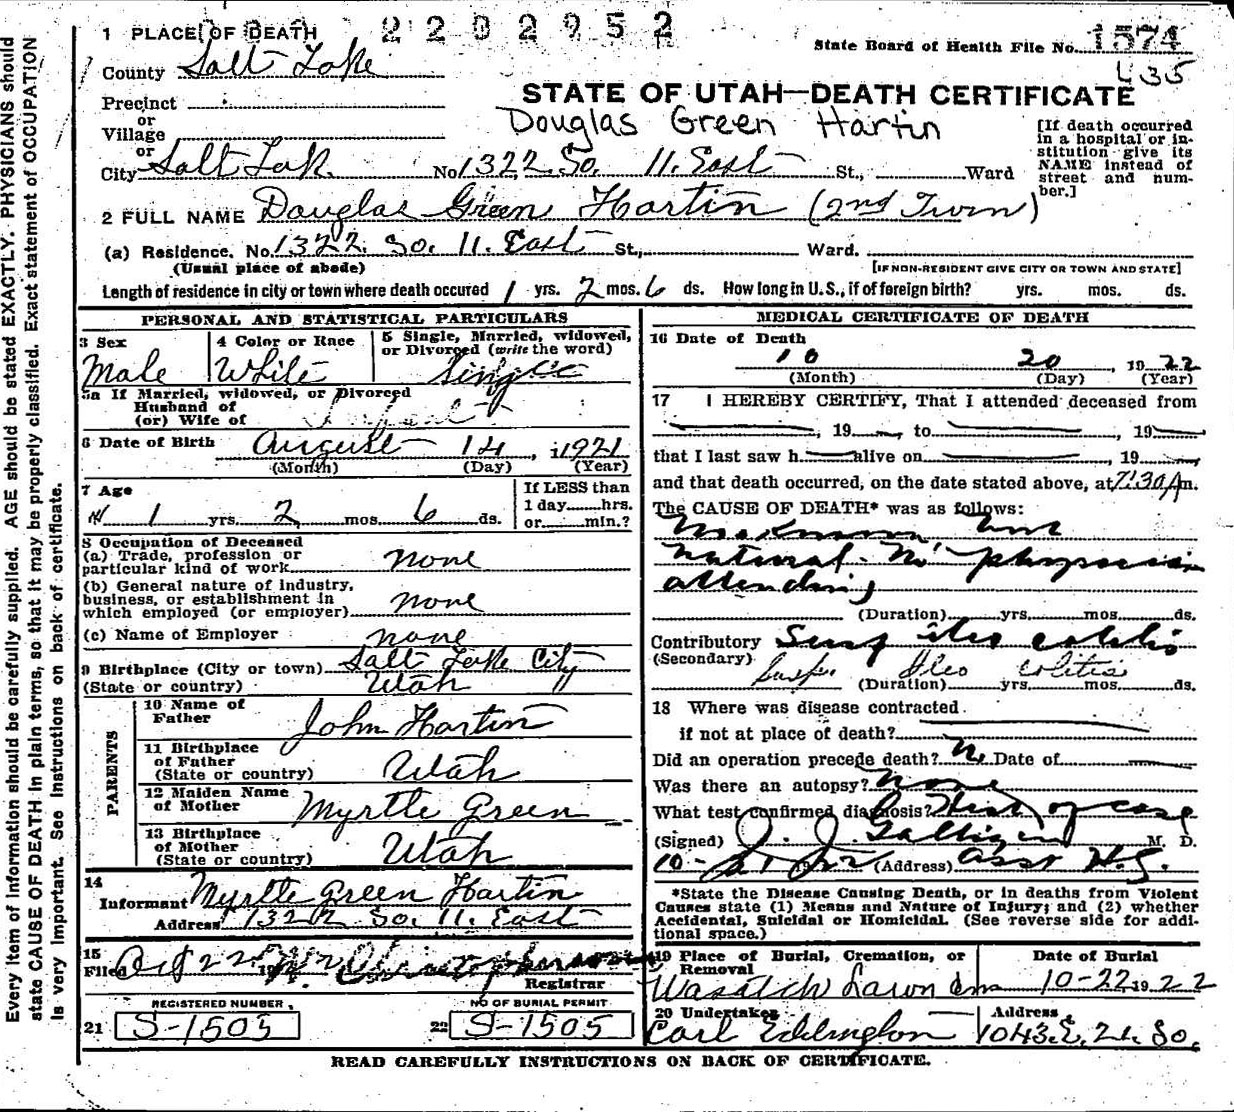 2202952
1 PLACE OF DEATH
State Board of Health File No. 1574
L35
County Salt Lake
STATE OF UTAH—DEATH CERTIFICATE
Precinct
or
Village
or
Douglas Green Hartin
[If death occurred in a hospital or institution give its NAME instead of street and number.]
City Salt Lake No 1322 So. 11. East St., Ward
2 FULL NAME Douglas Green Hartin (2nd Twin)
(a) Residence. No. 1322 So. 11. East St., Ward.
(Usual place of abode) [IF NON-RESIDENT GIVE CITY OR TOWN AND STATE]
Length of residence in city or town where death occured 1 yrs. 2 mos. 6 ds. How long in U.S., if of foreign birth? yrs. mos. ds.
PERSONAL AND STATISTICAL PARTICULARS
3 Sex Male
4 Color or Race White
5 Single, Married, widowed, or Divorced (write the word) Single
5a If Married, widowed, or Divorced
Husband of
(or) Wife of
6 Date of Birth August 14, 1921
(Month) (Day) (Year)
7 Age 1 yrs. 2 mos. 6 ds.
If LESS than
1 day hrs.
or min.?
8 Occupation of Deceased
(a) Trade, profession or
particular kind of work none
(b) General nature of industry,
business, or establishment in
which employed (or employer) none
(c) Name of Employer none
9 Birthplace (City or town) Salt Lake City
(State or country) Utah
PARENTS
10 Name of
Father John Hartin
11 Birthplace
of Father
(State or country) Utah
12 Maiden Name
of Mother Myrtle Green
13 Birthplace
of Mother
(State or country) Utah
14
Informant Myrtle Green Hartin
Address 1322 So. 11. East
15
Filed Oct 22
Registrar
REGISTERED NUMBER
21 S-1505
NO OF BURIAL PERMIT
22 S-1505
MEDICAL CERTIFICATE OF DEATH
16 Date of Death
10 20, 1922
(Month) (Day) (Year)
17 I HEREBY CERTIFY, That I attended deceased from
, 19 , to , 19
that I last saw h alive on , 19
and that death occurred, on the date stated above, at 7:30 A m.
The CAUSE OF DEATH* was as follows:
Unknown but
natural. No physician
attending
(Duration) yrs. mos. ds.
Contributory Susp ileo colitis
(Secondary) Susp. Ileo colitis
(Duration) yrs. mos. ds.
18 Where was disease contracted
if not at place of death?
Did an operation precede death? No Date of
Was there an autopsy? none
What test confirmed diagnosis? Hist of case
(Signed) M. D.
10-21 1922 (Address) Asst H.
*State the Disease Causing Death, or in deaths from Violent
Causes state (1) Means and Nature of Injury; and (2) whether
Accidental, Suicidal or Homicidal. (See reverse side for addi-
tional space.)
19 Place of Burial, Cremation, or
Removal
Wasatch Lawn Cem
Date of Burial
10-22 1922
20 Undertaker
Carl Eddington
Address
1043 E. 21. So.
READ CAREFULLY INSTRUCTIONS ON BACK OF CERTIFICATE.
Every item of information should be carefully supplied. AGE should be stated EXACTLY. PHYSICIANS should
state CAUSE OF DEATH in plain terms, so that it may be properly classified. Exact statement of OCCUPATION
is very important. See instructions on back of certificate.